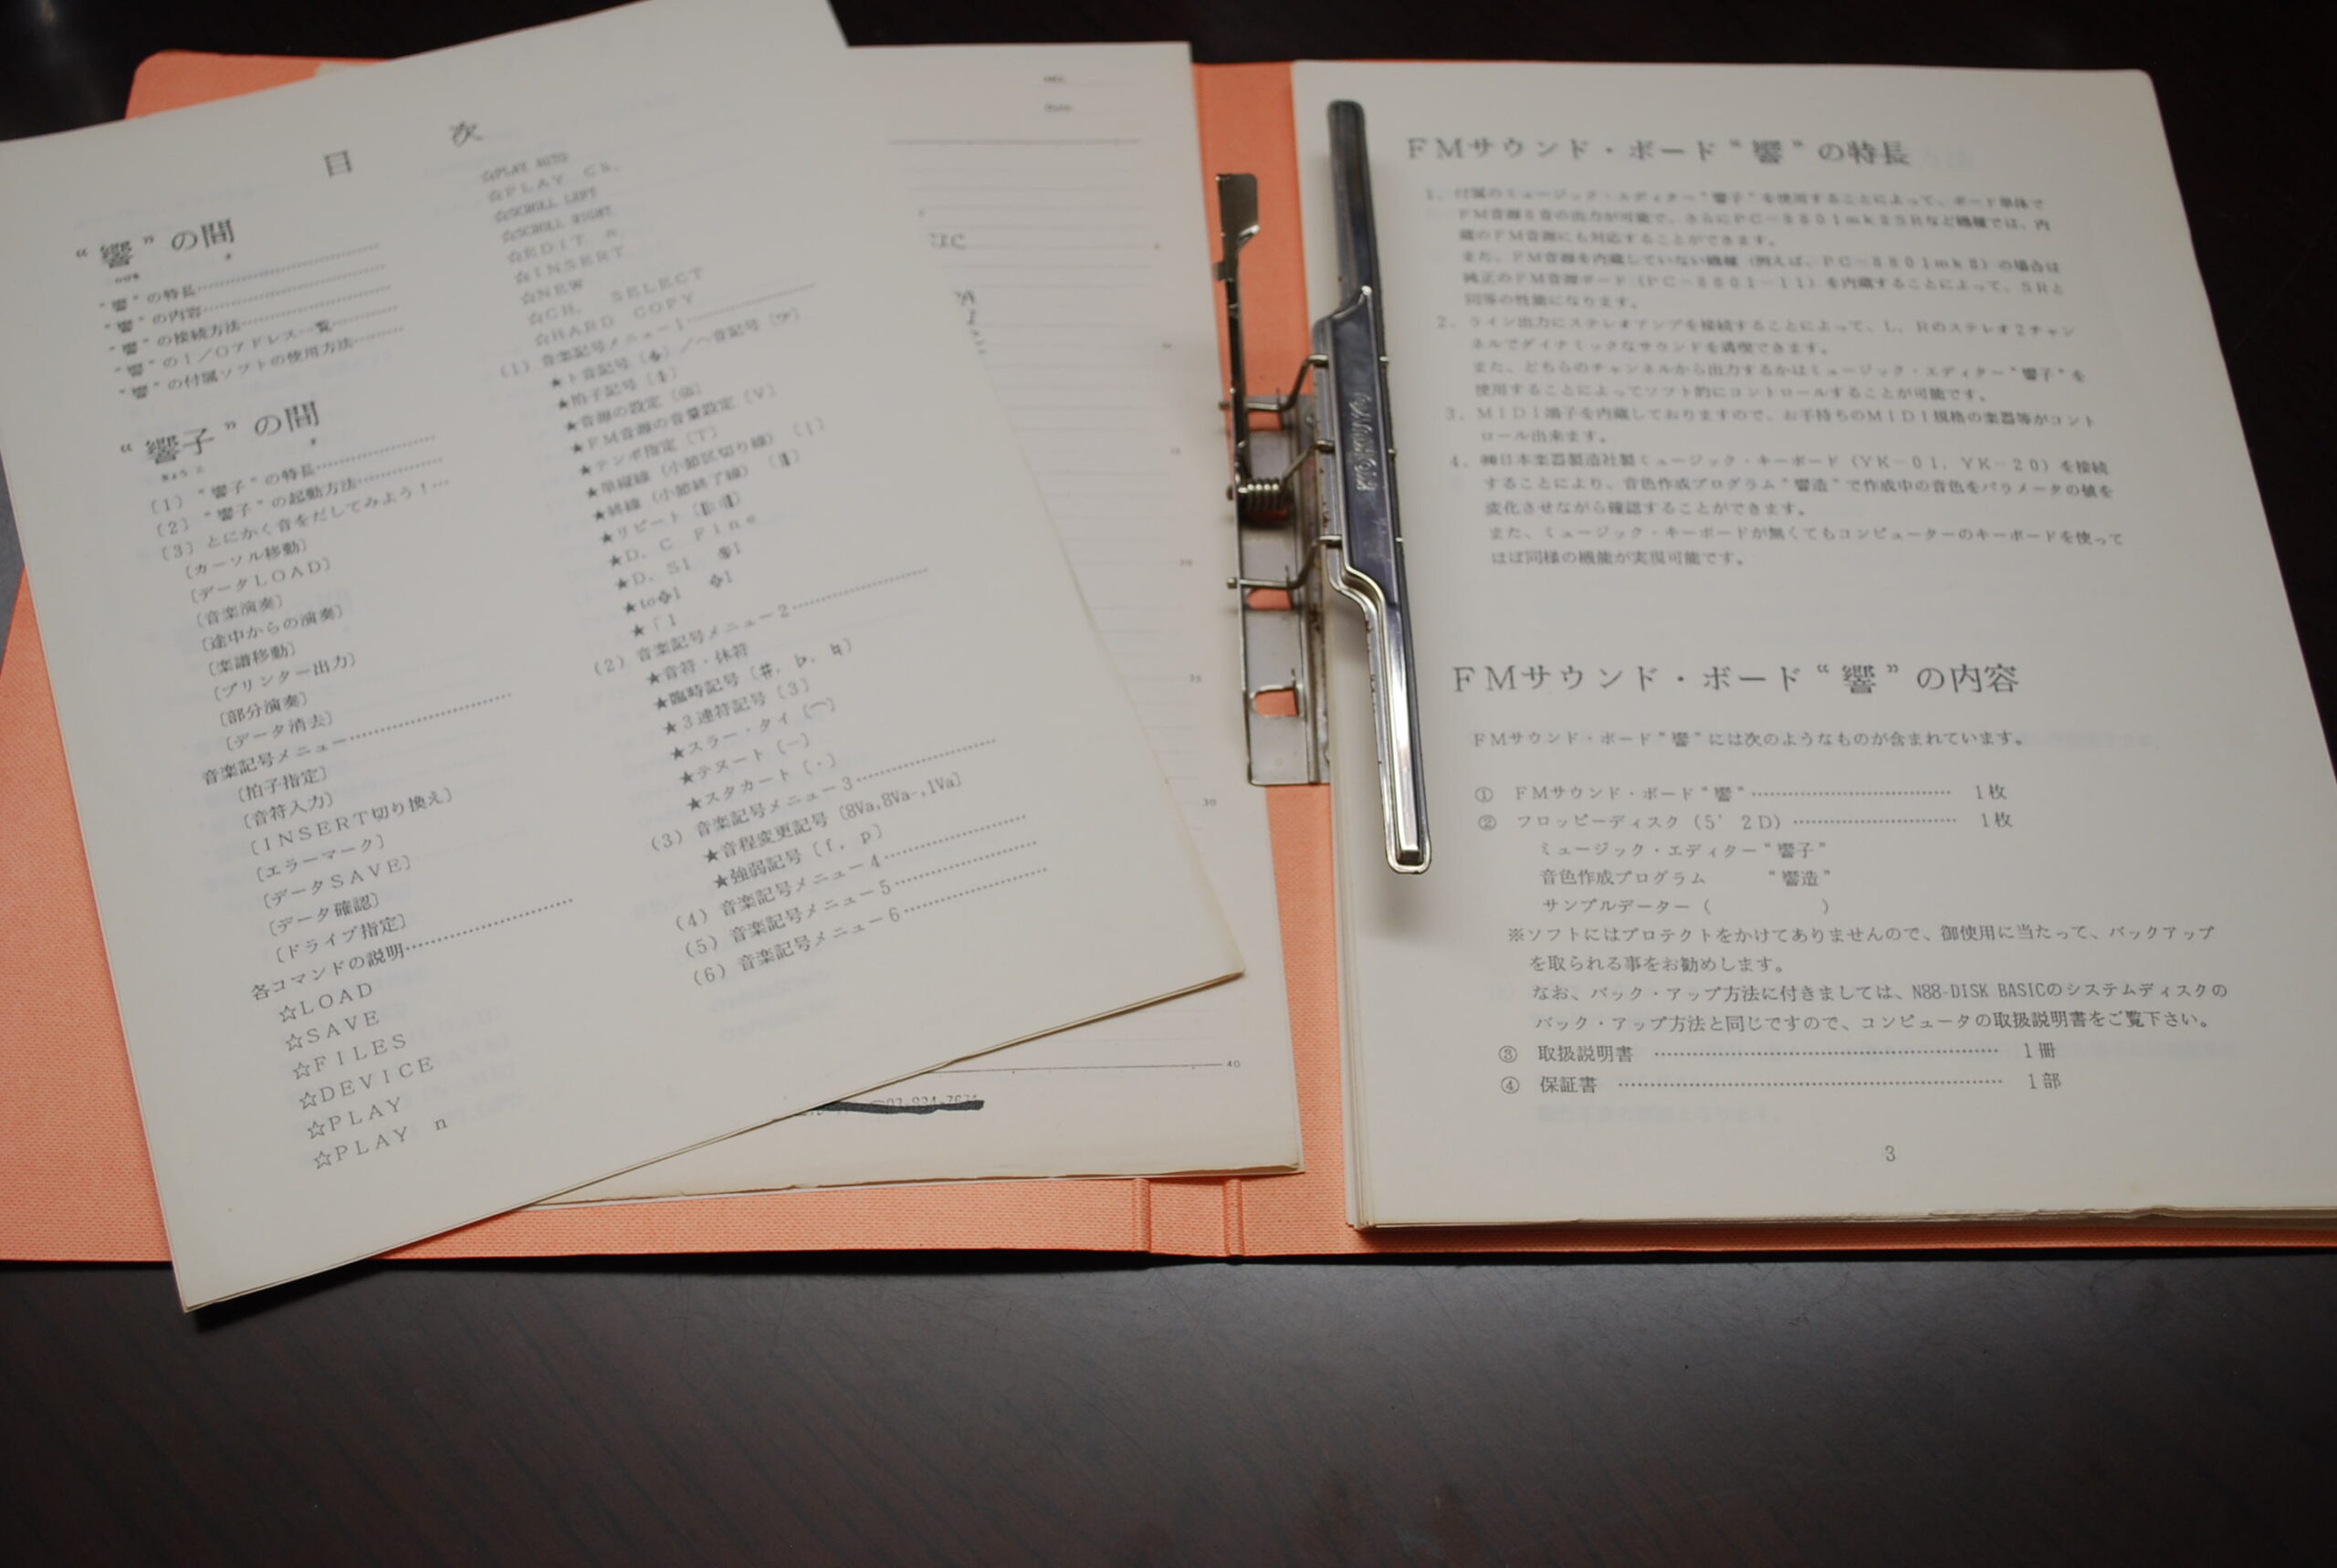 目 次
“響”の間
“響”の特長
“響”の内容
“響”の接続方法
“響”のI／Oアドレス一覧
“響”の付属ソフトの使用方法
“響子”の間
〔1〕“響子”の特長
〔2〕“響子”の起動方法
〔3〕とにかく音をだしてみよう！
〔カーソル移動〕
〔データLOAD〕
〔音楽演奏〕
〔途中からの演奏〕
〔楽譜移動〕
〔プリンター出力〕
〔部分演奏〕
〔データ消去〕
音楽記号メニュー
〔拍子指定〕
〔音符入力〕
〔INSERT切り換え〕
〔エラーマーク〕
〔データSAVE〕
〔データ確認〕
〔ドライブ指定〕
各コマンドの説明
☆LOAD
☆SAVE
☆FILES
☆DEVICE
☆PLAY
☆PLAY n
☆PLAY AUTO
☆PLAY CH.
☆SCROLL LEFT
☆SCROLL RIGHT
☆EDIT n
☆INSERT
☆NEW
☆CH. SELECT
☆HARD COPY
(1) 音楽記号メニュー1
★ト音記号／ヘ音記号
★拍子記号
★音源の設定
★FM音源の音量設定〔V〕
★テンポ指定〔T〕
★単縦線（小節区切り線）
★終線（小節終了線）
★リピート
★D. C Fine
★D. S1
★to
(2) 音楽記号メニュー2
★音符・休符
★臨時記号〔♯, ♭, ♮〕
★3連符記号〔3〕
★スラー・タイ〔⌒〕
★テヌート〔－〕
★スタカート〔・〕
(3) 音楽記号メニュー3
★音程変更記号〔8Va,8Va-,1Va〕
★強弱記号〔f, p〕
(4) 音楽記号メニュー4
(5) 音楽記号メニュー5
(6) 音楽記号メニュー6
30
40
FMサウンド・ボード“響”の特長
1. 付属のミュージック・エディター“響子”を使用することによって、ボード単体で
FM音源8音の出力が可能で、さらにPC－8801mkⅡSRなど機種では、内
蔵のFM音源にも対応することができます。
また、FM音源を内蔵していない機種（例えば、PC－8801mkⅡ）の場合は
純正のFM音源ボード（PC－8801－11）を内蔵することによって、SRと
同等の性能になります。
2. ライン出力にステレオアンプを接続することによって、L、Rのステレオ2チャン
ネルでダイナミックなサウンドを満喫できます。
また、どちらのチャンネルから出力するかはミュージック・エディター“響子”を
使用することによってソフト的にコントロールすることが可能です。
3. MIDI端子を内蔵しておりますので、お手持ちのMIDI規格の楽器等がコント
ロール出来ます。
4. ㈱日本楽器製造社製ミュージック・キーボード（YK－01, YK－20）を接続
することにより、音色作成プログラム“響造”で作成中の音色をパラメータの値を
変化させながら確認することができます。
また、ミュージック・キーボードが無くてもコンピューターのキーボードを使って
ほぼ同様の機能が実現可能です。
FMサウンド・ボード“響”の内容
FMサウンド・ボード“響”には次のようなものが含まれています。
① FMサウンド・ボード“響” 1枚
② フロッピーディスク（5’ 2D） 1枚
ミュージック・エディター“響子”
音色作成プログラム “響造”
サンプルデーター（ ）
※ソフトにはプロテクトをかけてありませんので、御使用に当たって、バックアップ
を取られる事をお勧めします。
なお、バック・アップ方法に付きましては、N88-DISK BASICのシステムディスクの
バック・アップ方法と同じですので、コンピュータの取扱説明書をご覧下さい。
③ 取扱説明書 1冊
④ 保証書 1部
3